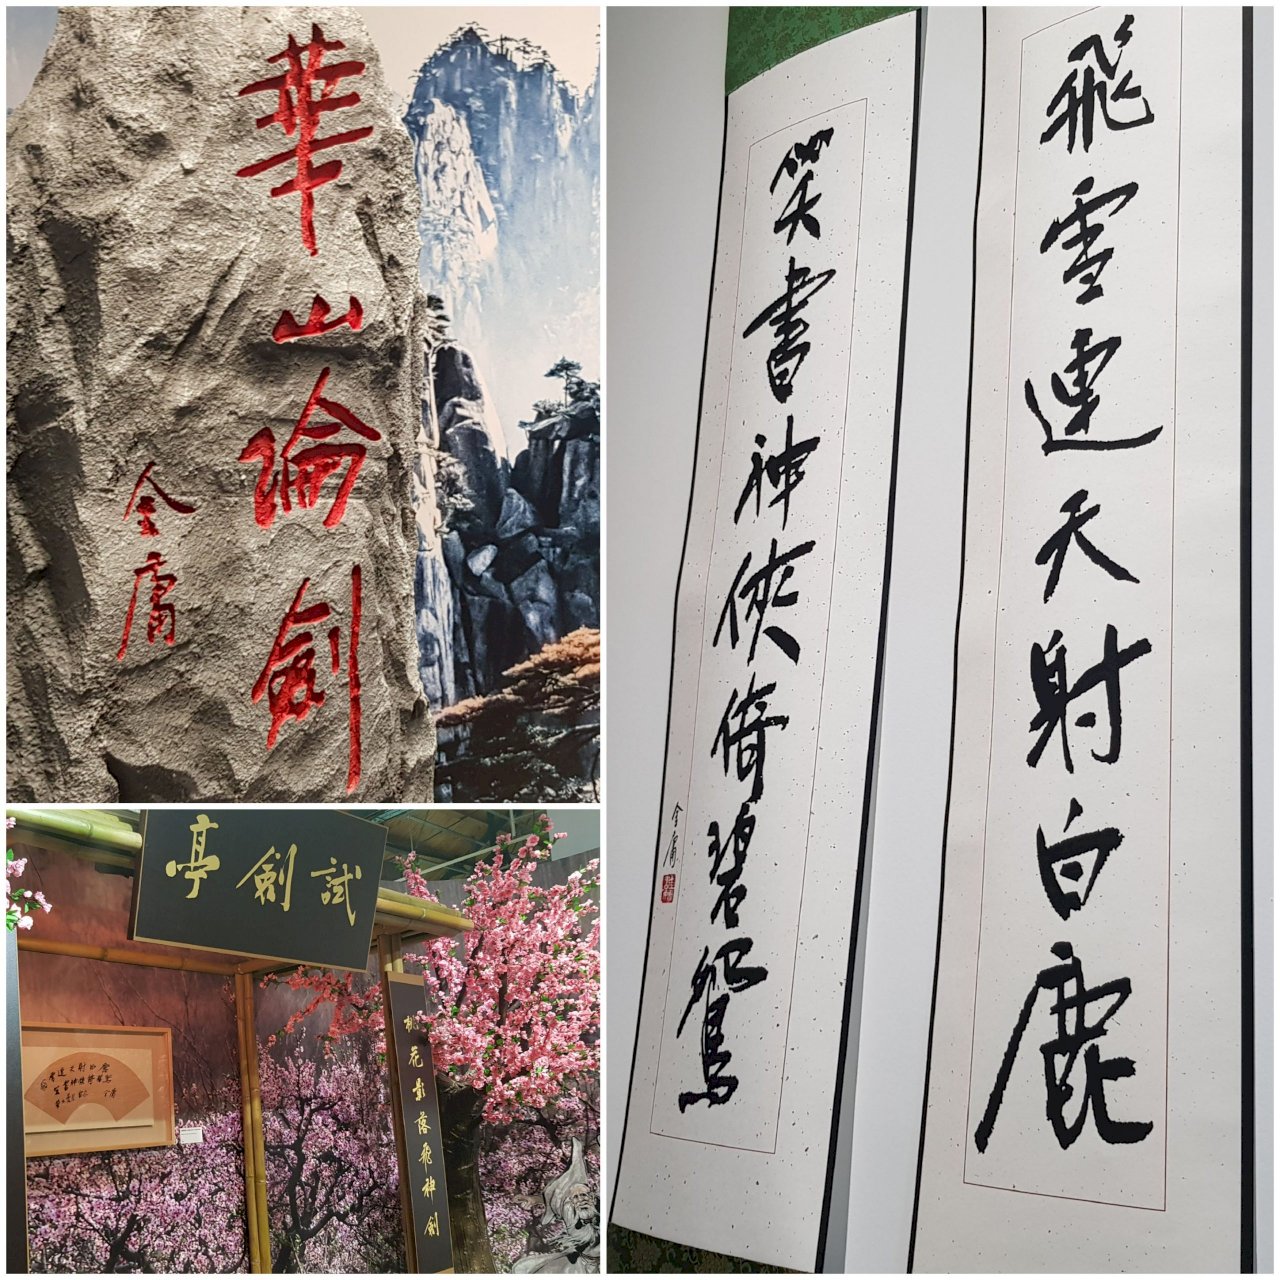 華山論劍
金庸
試劍亭
桃花影落飛神劍
飛雪連天射白鹿
笑書神俠倚碧鴛
金庸